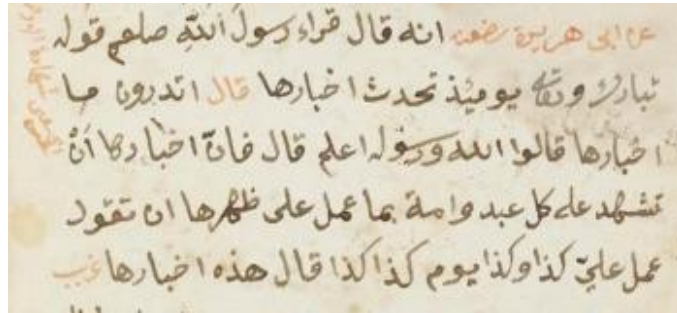 عن ابى هريرة رضعنه انه قال قراء رسول الله صلعم قوله
تبارك وتعالى يوميئذ تحدث اخبارها قال اتدرون ما
اخبارها قالوا الله ورسوله اعلم قال فانّ اخبارها أنْ
تشهد على كل عبد وامة بما عمل على ظهرها ان تقول
عمل علىّ كذا وكذا يوم كذا كذا قال هذه اخبارها غريب